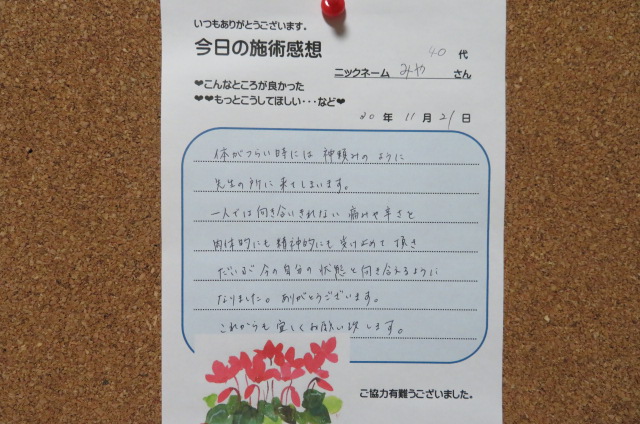 いつもありがとうございます。
今日の施術感想
40 代
ニックネーム みや さん
❤こんなところが良かった
❤❤もっとこうしてほしい・・・など❤
20 年 11 月 21 日
体がつらい時には 神頼みのように
先生の所に来てしまいます。
一人では向き合いきれない 痛みや辛さと
肉体的にも精神的にも 受け止めて 頂き
だいぶ今の自分の状態と向き合えるように
なりました。ありがとうございます。
これからも宜しくお願い致します。
ご協力有難うございました。